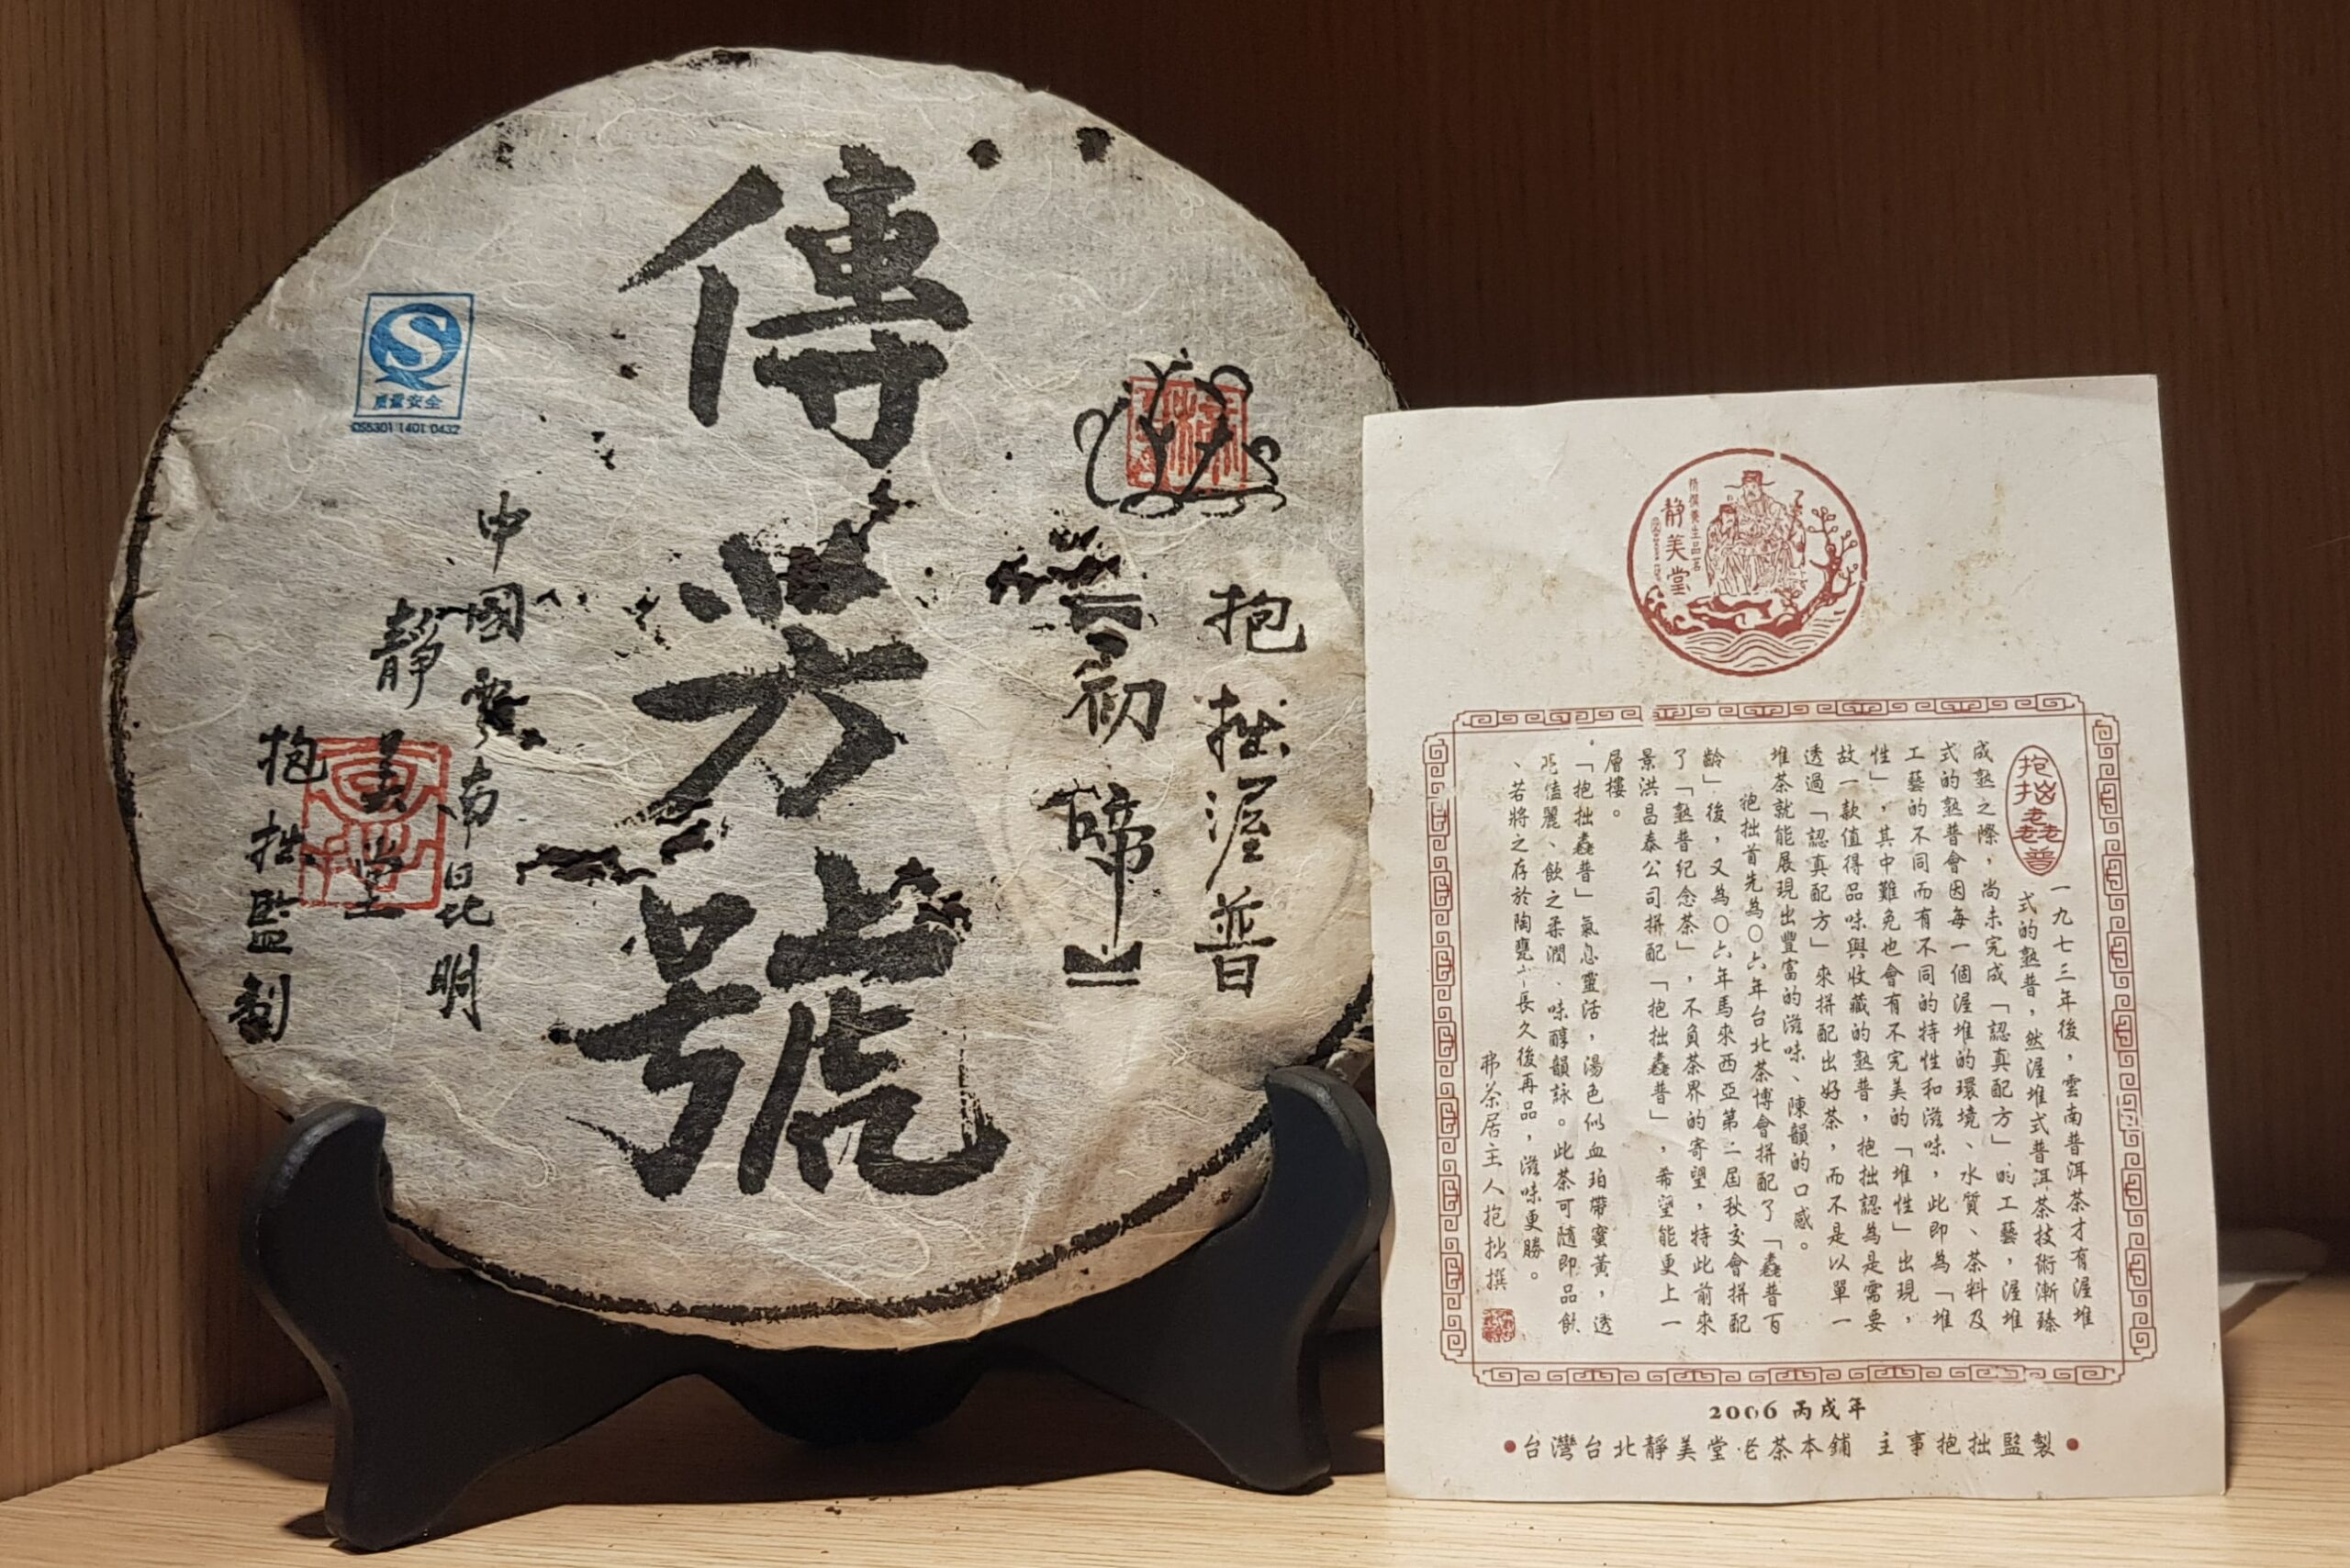 傳芳號
抱拙渥普
初啼
中國雲南昆明
靜美堂
抱拙監制
质量安全
QS5301 1401 0432
靜美堂
抱拙
普
一九七三年後，雲南普洱茶才有渥堆
式的熟普，然渥堆式普洱茶技術漸臻
成熟之際，尚未完成「認真配方」的工藝，渥堆
式的熟普會因每一個渥堆的環境、水質、茶料及
工藝的不同而有不同的特性和滋味，此即為「堆
性」，其中難免也會有不完美的「堆性」出現，
故一款值得品味與收藏的熟普，抱拙認為是需要
透過「認真配方」來拼配出好茶，而不是以單一
堆茶就能展現出豐富的滋味、陳韻的口感。
抱拙首先為〇六年台北茶博會拼配了「驫普百
齡」後，又為〇六年馬來西亞第二屆秋交會拼配
了「熟普紀念茶」，不負茶界的寄望，特此前來
景洪昌泰公司拼配「抱拙普」，希望能更上一
層樓。
「抱拙普」氣息靈活，湯色似血珀帶蜜黃，透
亮瑰麗、飲之柔潤、味醇韻詠。此茶可隨即品飲
、若將之存於陶甕中長久後再品，滋味更勝。
弗茶居主人抱拙撰
2006 丙戌年
台灣台北靜美堂老茶本鋪 主事抱拙監製